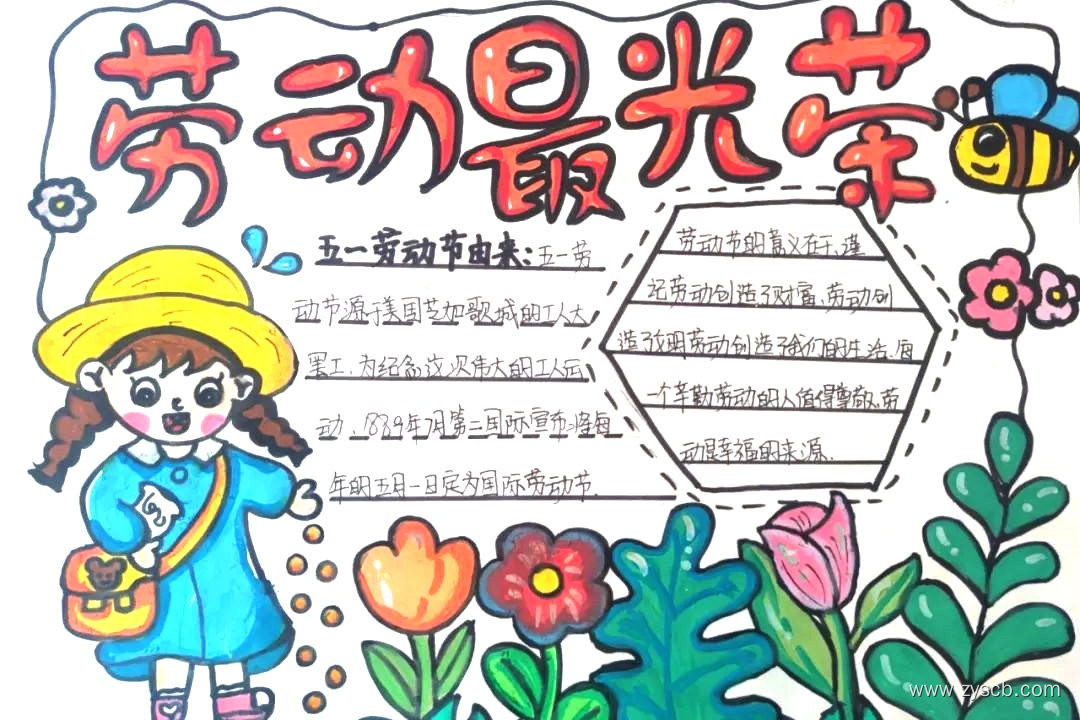 劳动最光荣
五一劳动节由来:五一劳
动节源于美国芝加歌城的工人大
罢工、为纪念这次伟大的工人运
动、1889年7月第二国际宣布将每
年的五月一日定为国际劳动节.
劳动节的意义在于、谨
记劳动创造了财富、劳动创
造了文明劳动创造了我们的生活、每
一个辛勤劳动的人值得尊敬、劳
动是幸福的来源.
www.zyscb.com